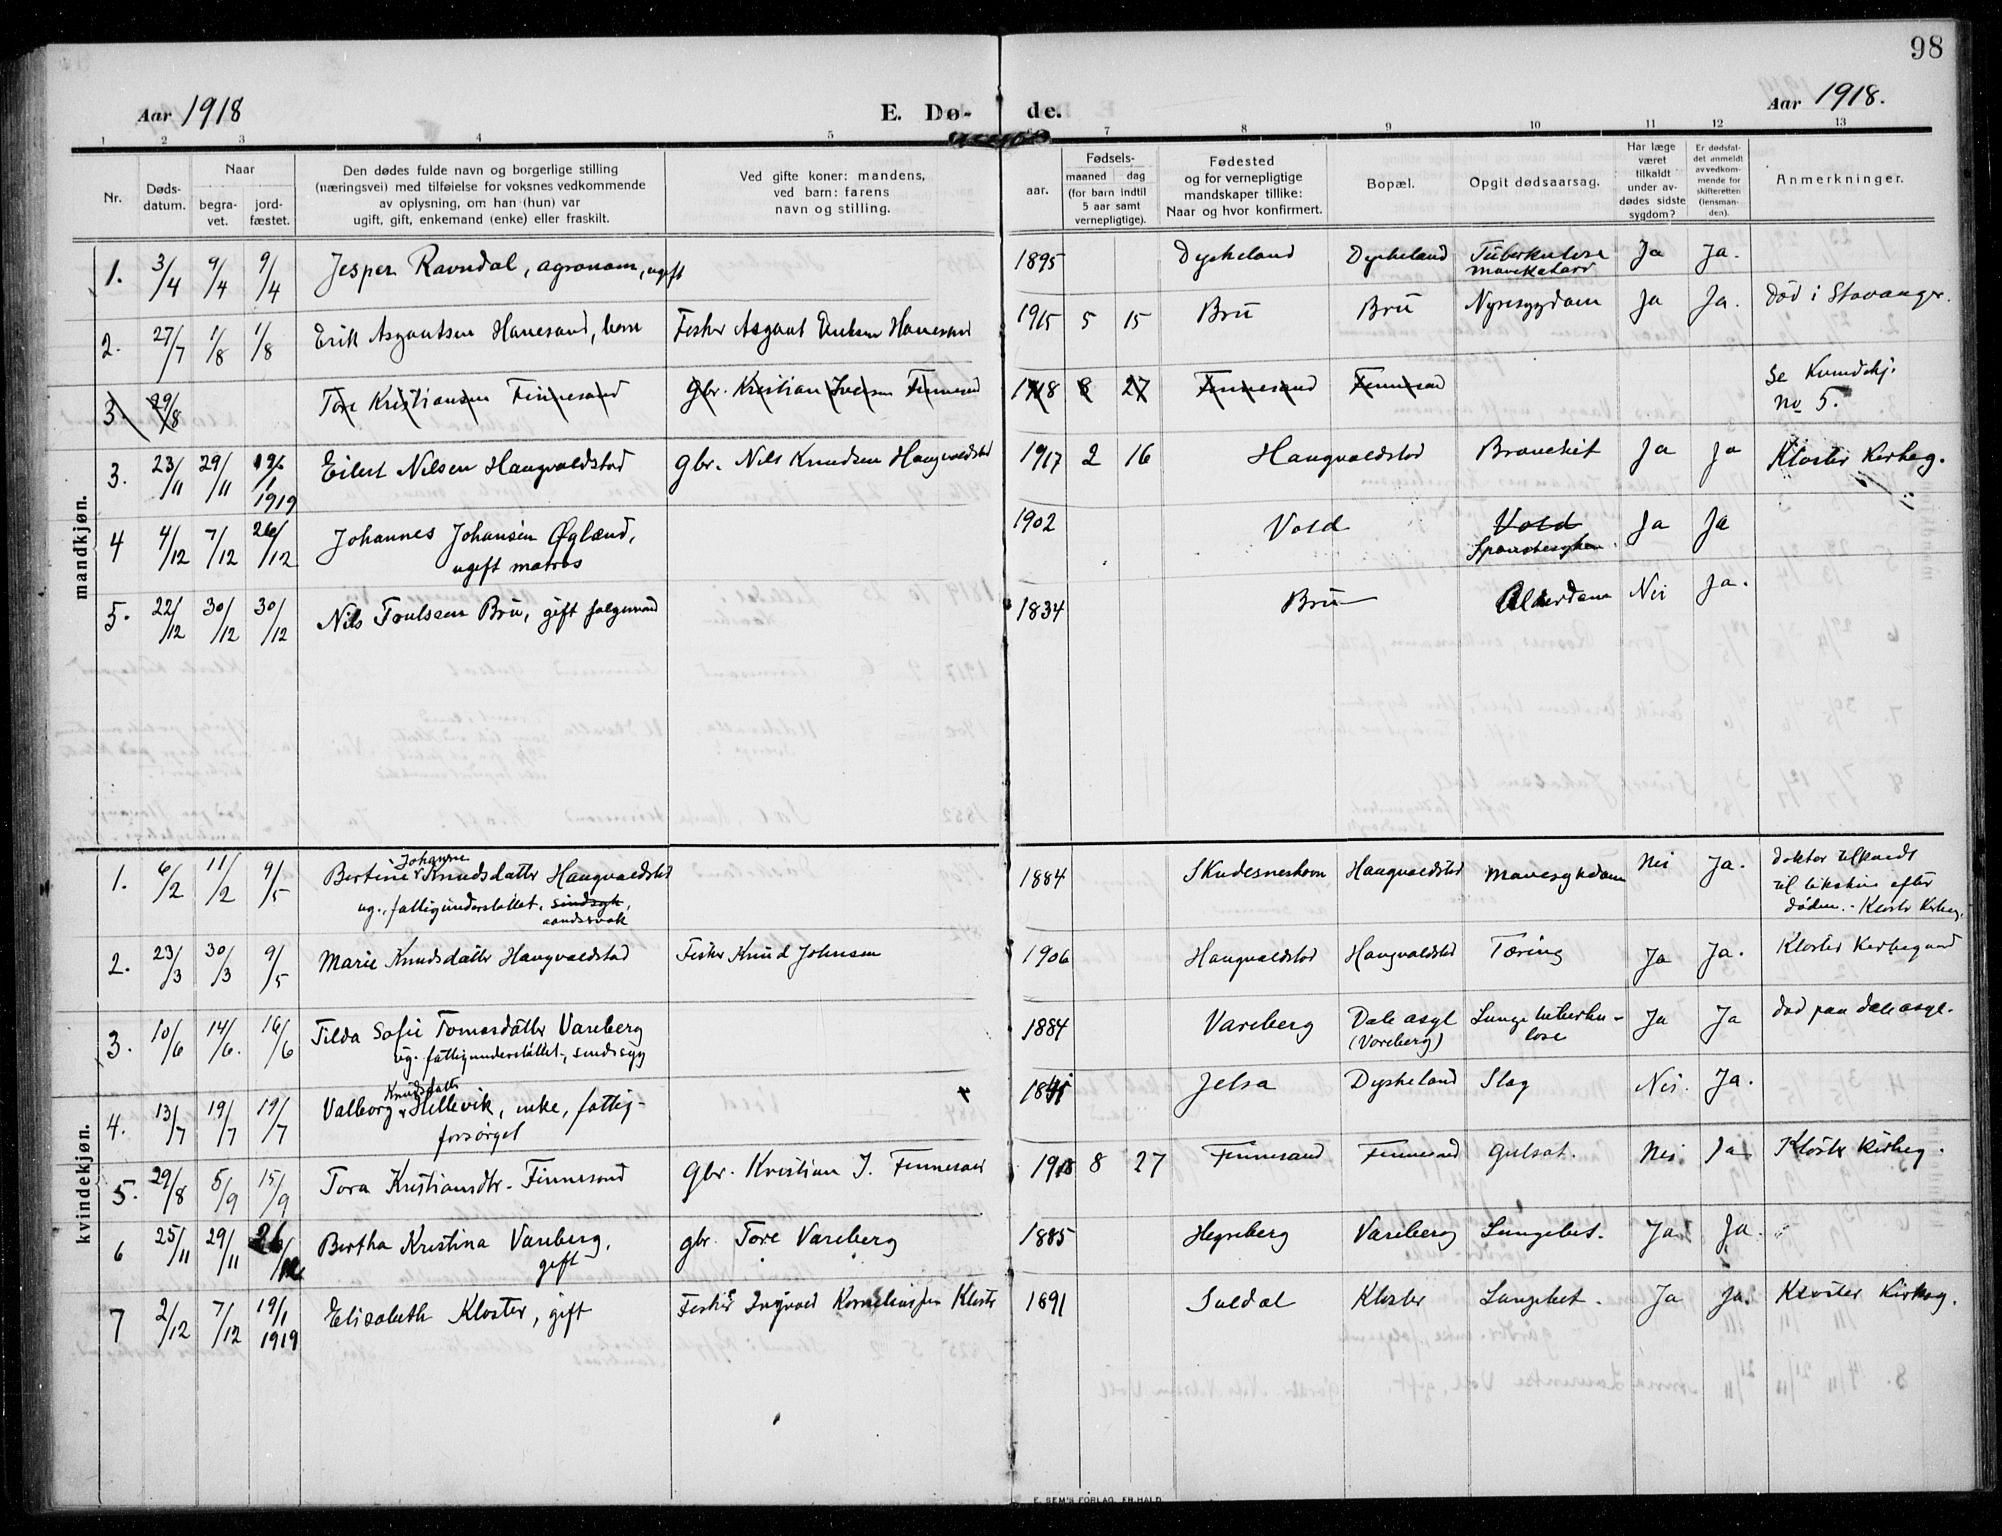 98
Aar 1918
E. Dø-
de.
Aar 1918.
1 2 3 4 5 7 8 9 10 11 12 13
Nr.
Døds-
datum.
Naar
begra-
vet.
jord-
fæstet.
Den dødes fulde navn og borgerlige stilling
(næringsvei) med tilføielse for voksnes vedkommende
av oplysning, om han (hun) var
ugift, gift, enkemand (enke) eller fraskilt.
Ved gifte koner: mandens,
ved barn: farens
navn og stilling.
aar.
Fødsels-
maaned dag
(for barn indtil
5 aar samt
vernepligtige).
Fødested
og for vernepligtige
mandskaper tillike:
Naar og hvor konfirmert.
Bopæl.
Opgit dødsaarsag.
Har læge
været
tilkaldt
under av-
dødes sidste
sygdom?
Er dødsfal-
det anmeldt
av vedkom-
mende for
skifteretten
(lensman-
den).
Anmerkninger.
mandkjøn.
1. 3/4 9/4 9/4 Jesper Ravndal, agronom, ugift 1895 Dyskeland Dyskeland Tuberkulose Ja Ja.
mavekatarr
2. 27/7 1/8 1/8 Erik Asgautsen Hanesand, barn Fisker Asgaut Eriksen Hanesand 1915 5 15 Bru Bru Nyresygdom Ja Ja. Død i Stavanger.
3. 29/8 Tore Kristiansen Finnesand Gbr. Kristian Iversen Finnesand 1918 8 27 Finnesand Finnesand Se Kvindekj.
no 5.
3. 23/11 29/11 19/1 1919 Eilert Nilsen Haugvaldstad Gbr. Nils Knudsen Haugvaldstad 1917 2 16 Haugvaldstad Bronchit Ja Ja Kloster Kirkeg.
4 4/12 7/12 26/12 Johannes Johansen Øglænd, 1902 Vold Vold Ja Ja
ugift matros Spanskesyken.
5. 22/12 30/12 30/12 Nils Toulssen Bru, gift folgemand 1834 Bru Alderdom Nei Ja.
kvindekjøn.
1. 6/2 11/2 9/5 Bertine Johanne Knudsdatter Haugvaldstad 1884 Skudesneshavn Haugvaldstad Mavesykdom Nei Ja. Doktor tilkaldt
ug., fattigunderstøttet, sindsyk, til likskue efter
aandssvak døden. - Kloster Kirkeg.
2. 23/3 30/3 9/5 Marie Knudsdatter Haugvaldstad Fisker Knud Johnsen 1906 Haugvaldstad Haugvaldstad Tæring Ja Ja. Kloster Kirkegaard
3. 10/6 14/6. 16/6 Tilda Sofie Tomasdatter Vareberg 1884 Vareberg Dale asyl Lungetuberku- Ja Ja død paa Dale asyl.
ug. fattigunderstøttet, sindssyg (Vareberg) lose
4. 13/7 19/7 19/7 Valborg Knudsdatter Hellevik, enke, fattig- Jelsa Dyskeland Slag Nei. Ja.
forsørget
5. 29/8 5/9 15/9 Tora Kristiansdtr. Finnesand Gbr. Kristian I. Finnesand 1918 8 27 Finnesand Finnesand Gulsot. Nei Ja Kloster Kirkeg.
6 25/11 29/11 26/12 Bertha Kristina Vareberg, gbr. Tore Vareberg 1885 Hegreberg Vareberg Lungebet. Ja Ja.
gift
7 2/12 7/12 19/1 1919 Elisabeth Kloster, gift Fisker Ingvald Korneliussen Kloster 1891 Suldal Kloster Lungebet. Ja Ja. Kloster Kirkeg.
E. SEM'S FORLAG, FR.HALD